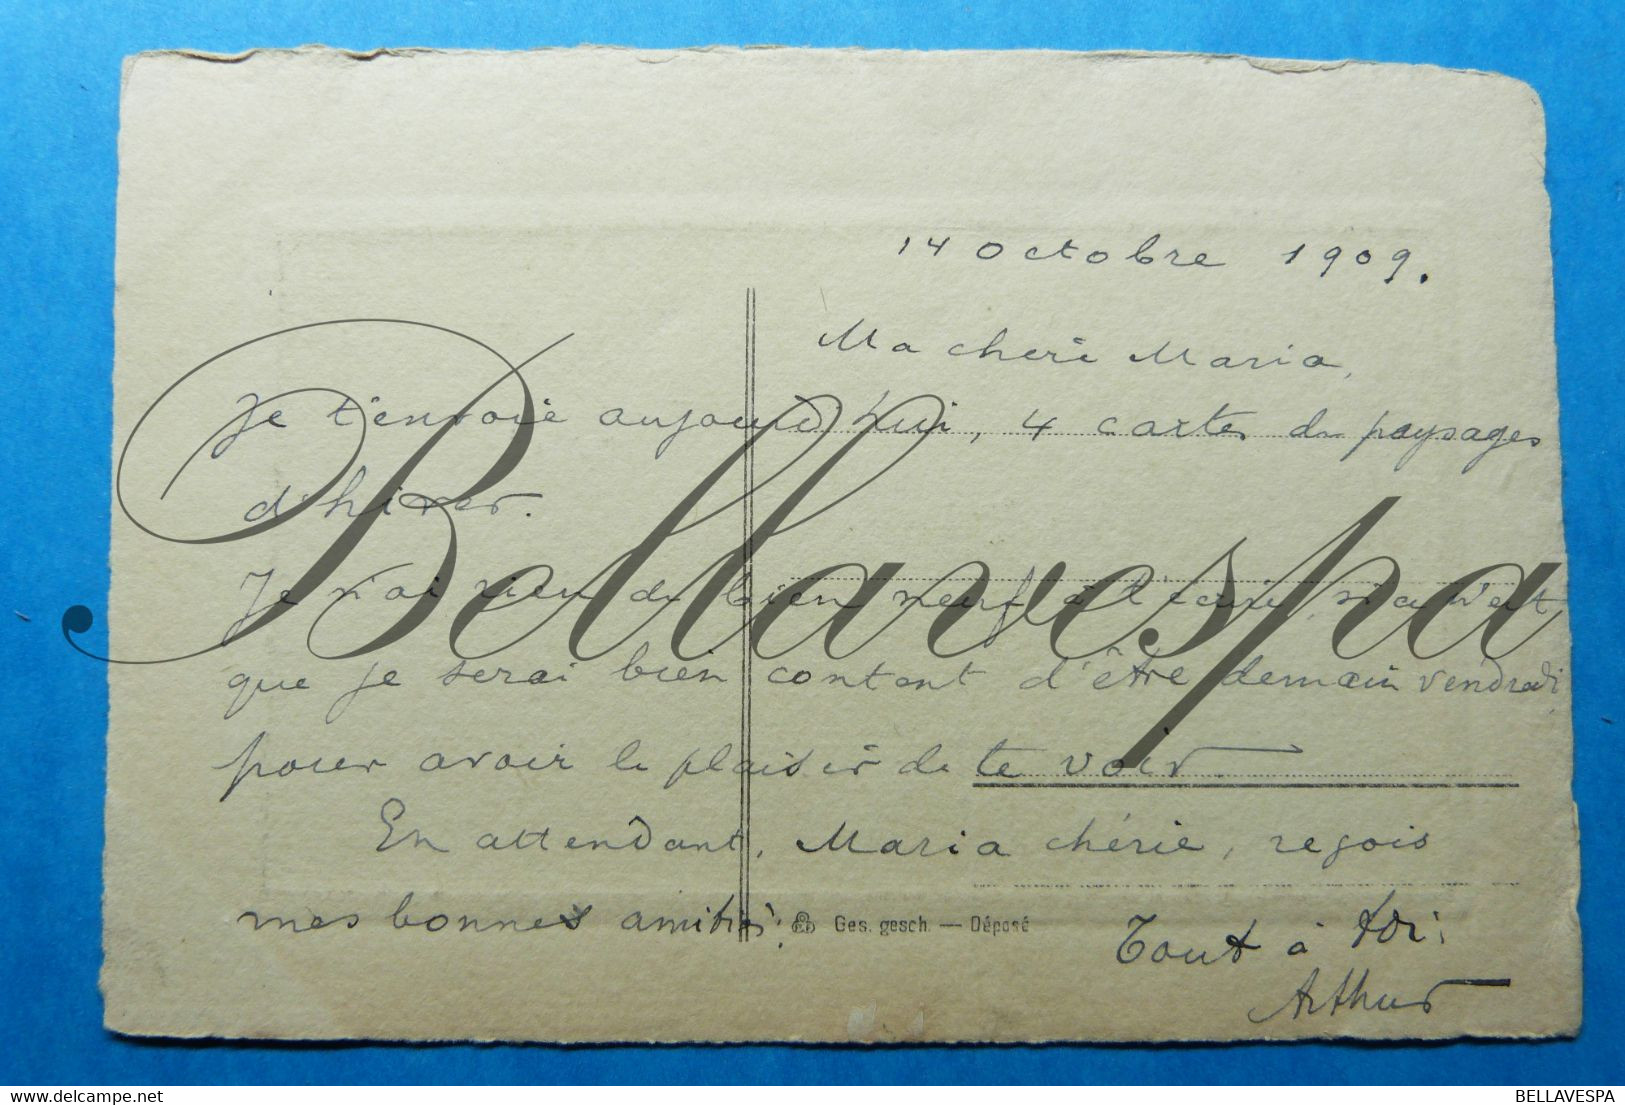 14 Octobre 1909.
Ma cherie Maria,
Je t'envoie aujourd'hui, 4 cartes de paysages
d'hiver.
Je n'ai rien de bien neuf à t'écrire, si ce n'est
que je serai bien content d'être demain vendredi,
pour avoir le plaisir de te voir.
En attendant, Maria chérie, reçois
mes bonnes amitiés.
Ges. gesch. — Déposé
Tout à toi:
Arthur
Bellavespa
BELLAVESPA
delcampe.net